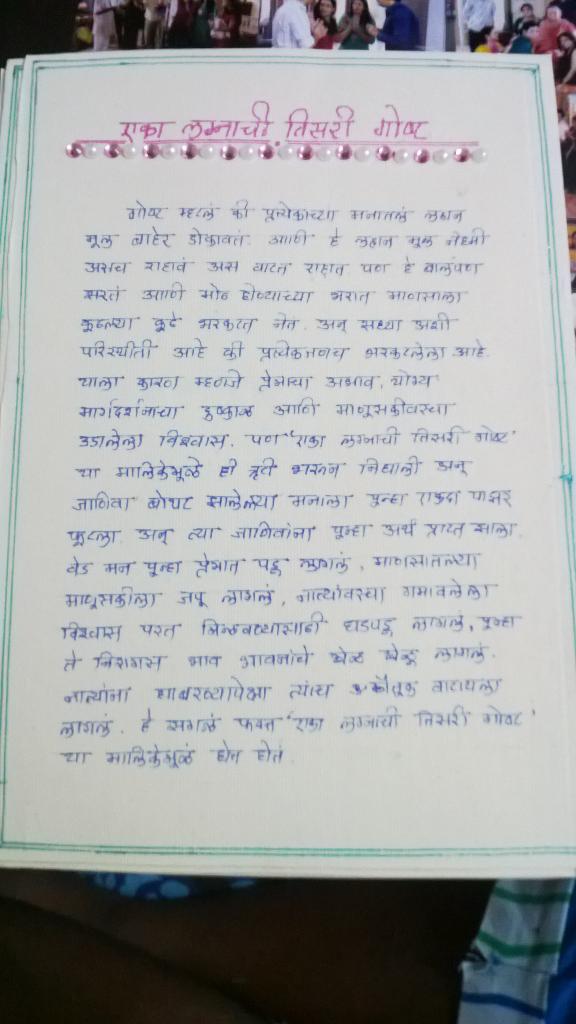 एका लग्नाची तिसरी गोष्ट
गोष्ट म्हटलं की प्रत्येकाच्या मनातलं लहान
मूल बाहेर डोकावतं. आणि हे लहान मूल नेहमी
असच राहावं अस वाटत राहत पण हे बालपण
सरतं आणि मोठ होण्याच्या भरात माणसाला
कुठल्या कुठे भरकटत नेत. अन् सध्या अशी
परिस्थीती आहे की प्रत्येकजणच भरकटलेला आहे.
याला कारण म्हणजे प्रेमाचा अभाव, योग्य
मार्गदर्शनाचा दुष्काळ आणि माणूसकीवरचा
उडालेला विश्वास. पण 'एका लग्नाची तिसरी गोष्ट'
या मालिकेमूळे ही त्रूटी भरून निघाली अन्
जाणिवा बोथट झालेल्या मनाला पून्हा एकदा पाझर
फूटला. अन् त्या जाणिवांना पून्हा अर्थ प्राप्त झाला.
वेड मन पून्हा प्रेमात पडू लागलं, माणसातल्या
माणूसकीला जपू लागलं, नात्यांवरचा गमावलेला
विश्वास परत मिळवण्यासाठी धडपडू लागलं, पून्हा
ते निरागस भाव भावनांचे खेळ खेळू लागलं.
नात्यांना घाबरण्यापेक्षा त्यांच कौतूक वाटायला
लागलं. हे सगळं फक्त 'एका लग्नाची तिसरी गोष्ट'
या मालिकेमूळं होत होतं.